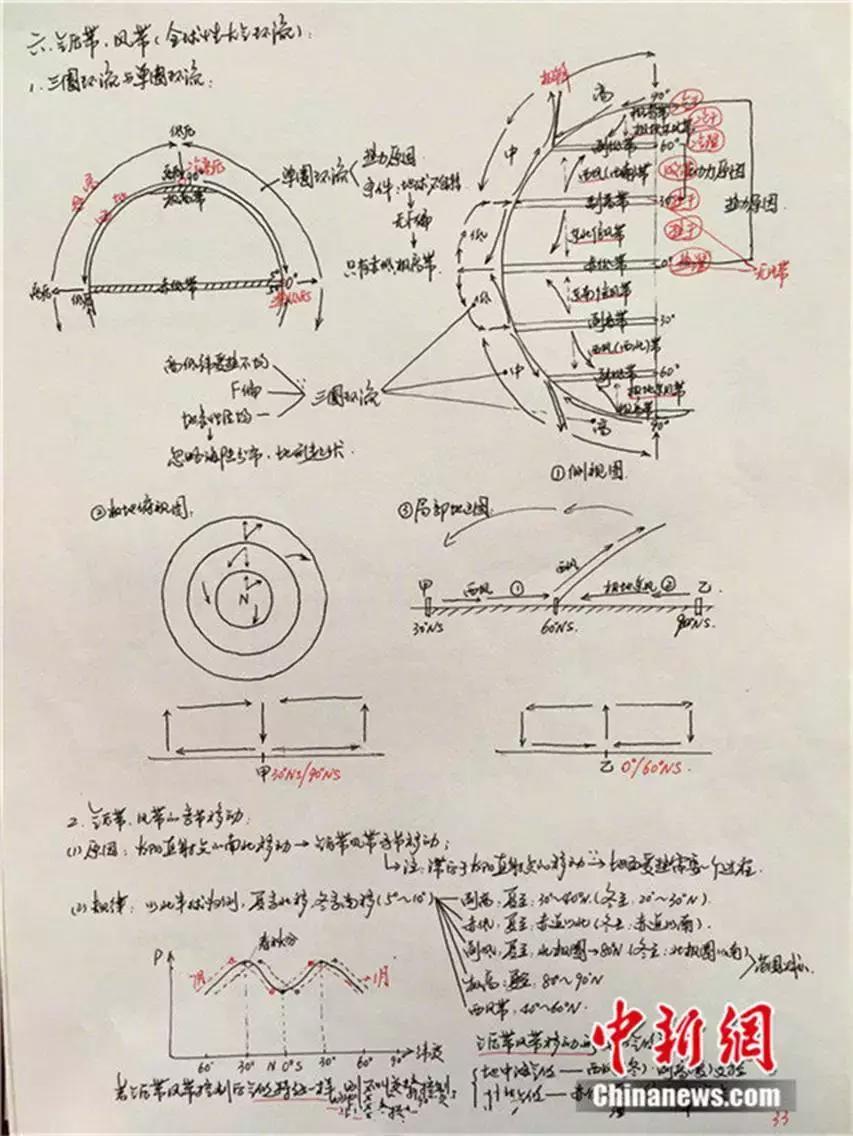 六、气压带、风带(全球性大气环流):
1、三圈环流与单圈环流:
低压
冷高压
极高带
赤低带
高压
低压
0°
单圈环流
热力原因
条件:地球不自转
无F偏
只有赤低极高带
高低纬受热不均
F偏
地表性质均一
忽略海陆分布、地形起伏
三圈环流
极锋
高
中
低
低
中
高
90°
极高带
极地东风带
副低带 60°
西风(西南)带
副高带 30°
东北信风带
赤低带 0°
东南信风带
副高带 30°
西风(西北)带
副低带 60°
极地东风带
极高带
90°
冷干
冷干
冷湿
热干
热湿
动力原因
热力原因
①侧视图
②极地俯视图
N
③局部地区图
甲 西风 ① 西风 极地东风 ② 乙
30°NS 60°NS 90°NS
甲 30°NS/90°NS
乙 0°/60°NS
2、气压带、风带的季节移动:
(1)原因:太阳直射点的南北移动→气压带风带季节移动;
注:滞后于太阳直射点的移动∵地面受热需要一个过程
(2)规律:以北半球为例,夏季北移,冬季南移(5°~10°)
副高:夏至:30°~40°N(冬至:20°~30°N)
赤低:夏至:赤道以北(冬至:赤道以南)
副低:夏至:北极圈→80°N(冬至:北极圈以南)
极高:夏至:80°~90°N
西风带:40°~60°N
春秋分
P
7月
1月
60° 30° N 0° S 30° 60° 90° 纬度
若气压带风带控制后气候特征一样,则不叫交替控制
气压带风带移动
地中海气候——西风(冬) 副高(夏)交控
中新網
Chinanews.com
33